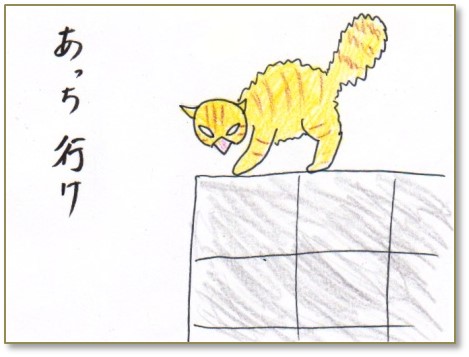 あっち行け